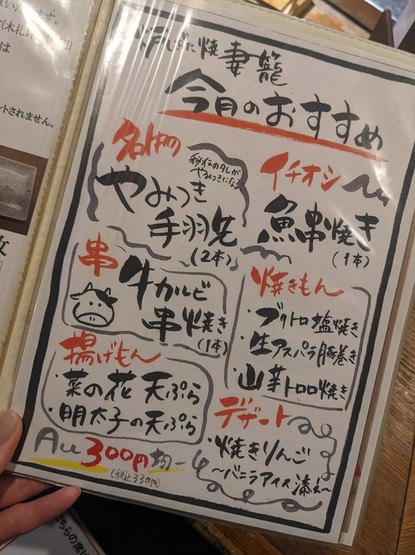 妻籠
今月のおすすめ
名物
秘伝のタレが
やみつきになる
やみつき
手羽先
(2本)
イチオシ
魚串焼き
(1本)
串
牛カルビ
串焼き
(1本)
焼きもん
・ブリトロ塩焼き
・生アスパラ豚巻き
・山芋トロロ焼き
揚げもん
・菜の花天ぷら
・明太子の天ぷら
デザート
・焼きりんご
〜バニラアイス添え〜
All 300円均一
(税込330円)